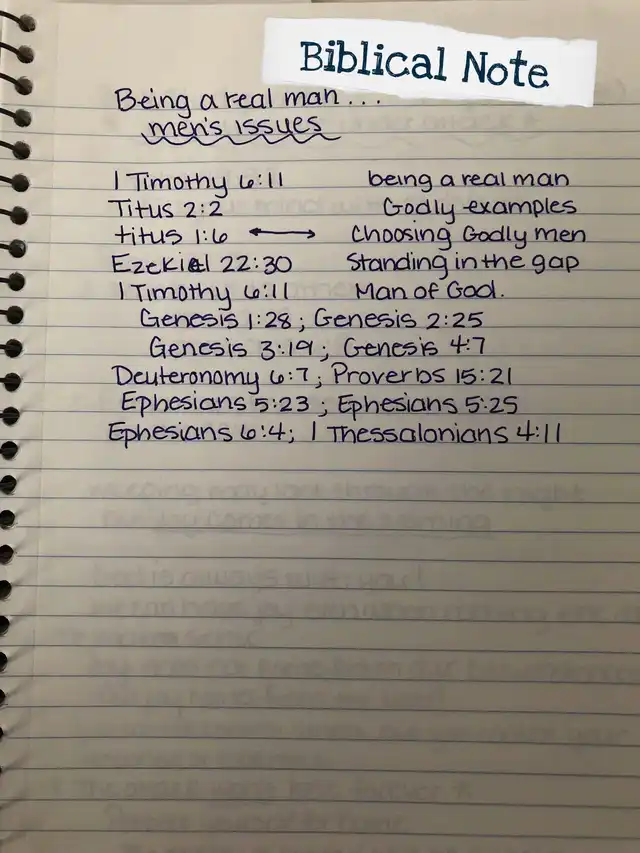 Biblical Note
Being a real man...
men's issues
1 Timothy 6:11 being a real man
Titus 2:2 Godly examples
titus 1:6 ⟷ Choosing Godly men
Ezekiel 22:30 Standing in the gap
1 Timothy 6:11 Man of God.
Genesis 1:28; Genesis 2:25
Genesis 3:19; Genesis 4:7
Deuteronomy 6:7; Proverbs 15:21
Ephesians 5:23; Ephesians 5:25
Ephesians 6:4; 1 Thessalonians 4:11